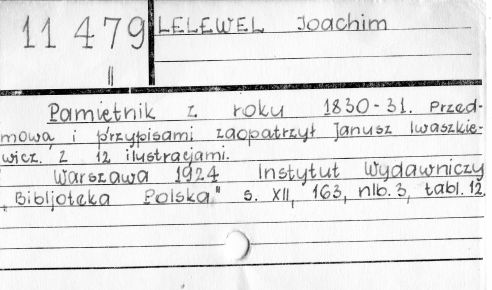 11 479
II
LELEWEL Joachim
Pamiętnik z roku 1830-31. Przed-
mową i przypisami zaopatrzył Janusz Iwaszkie-
wicz. Z 12 ilustracjami.
Warszawa 1924 Instytut Wydawniczy
„Bibljoteka Polska" s. XII, 163, nlb. 3, tabl. 12.